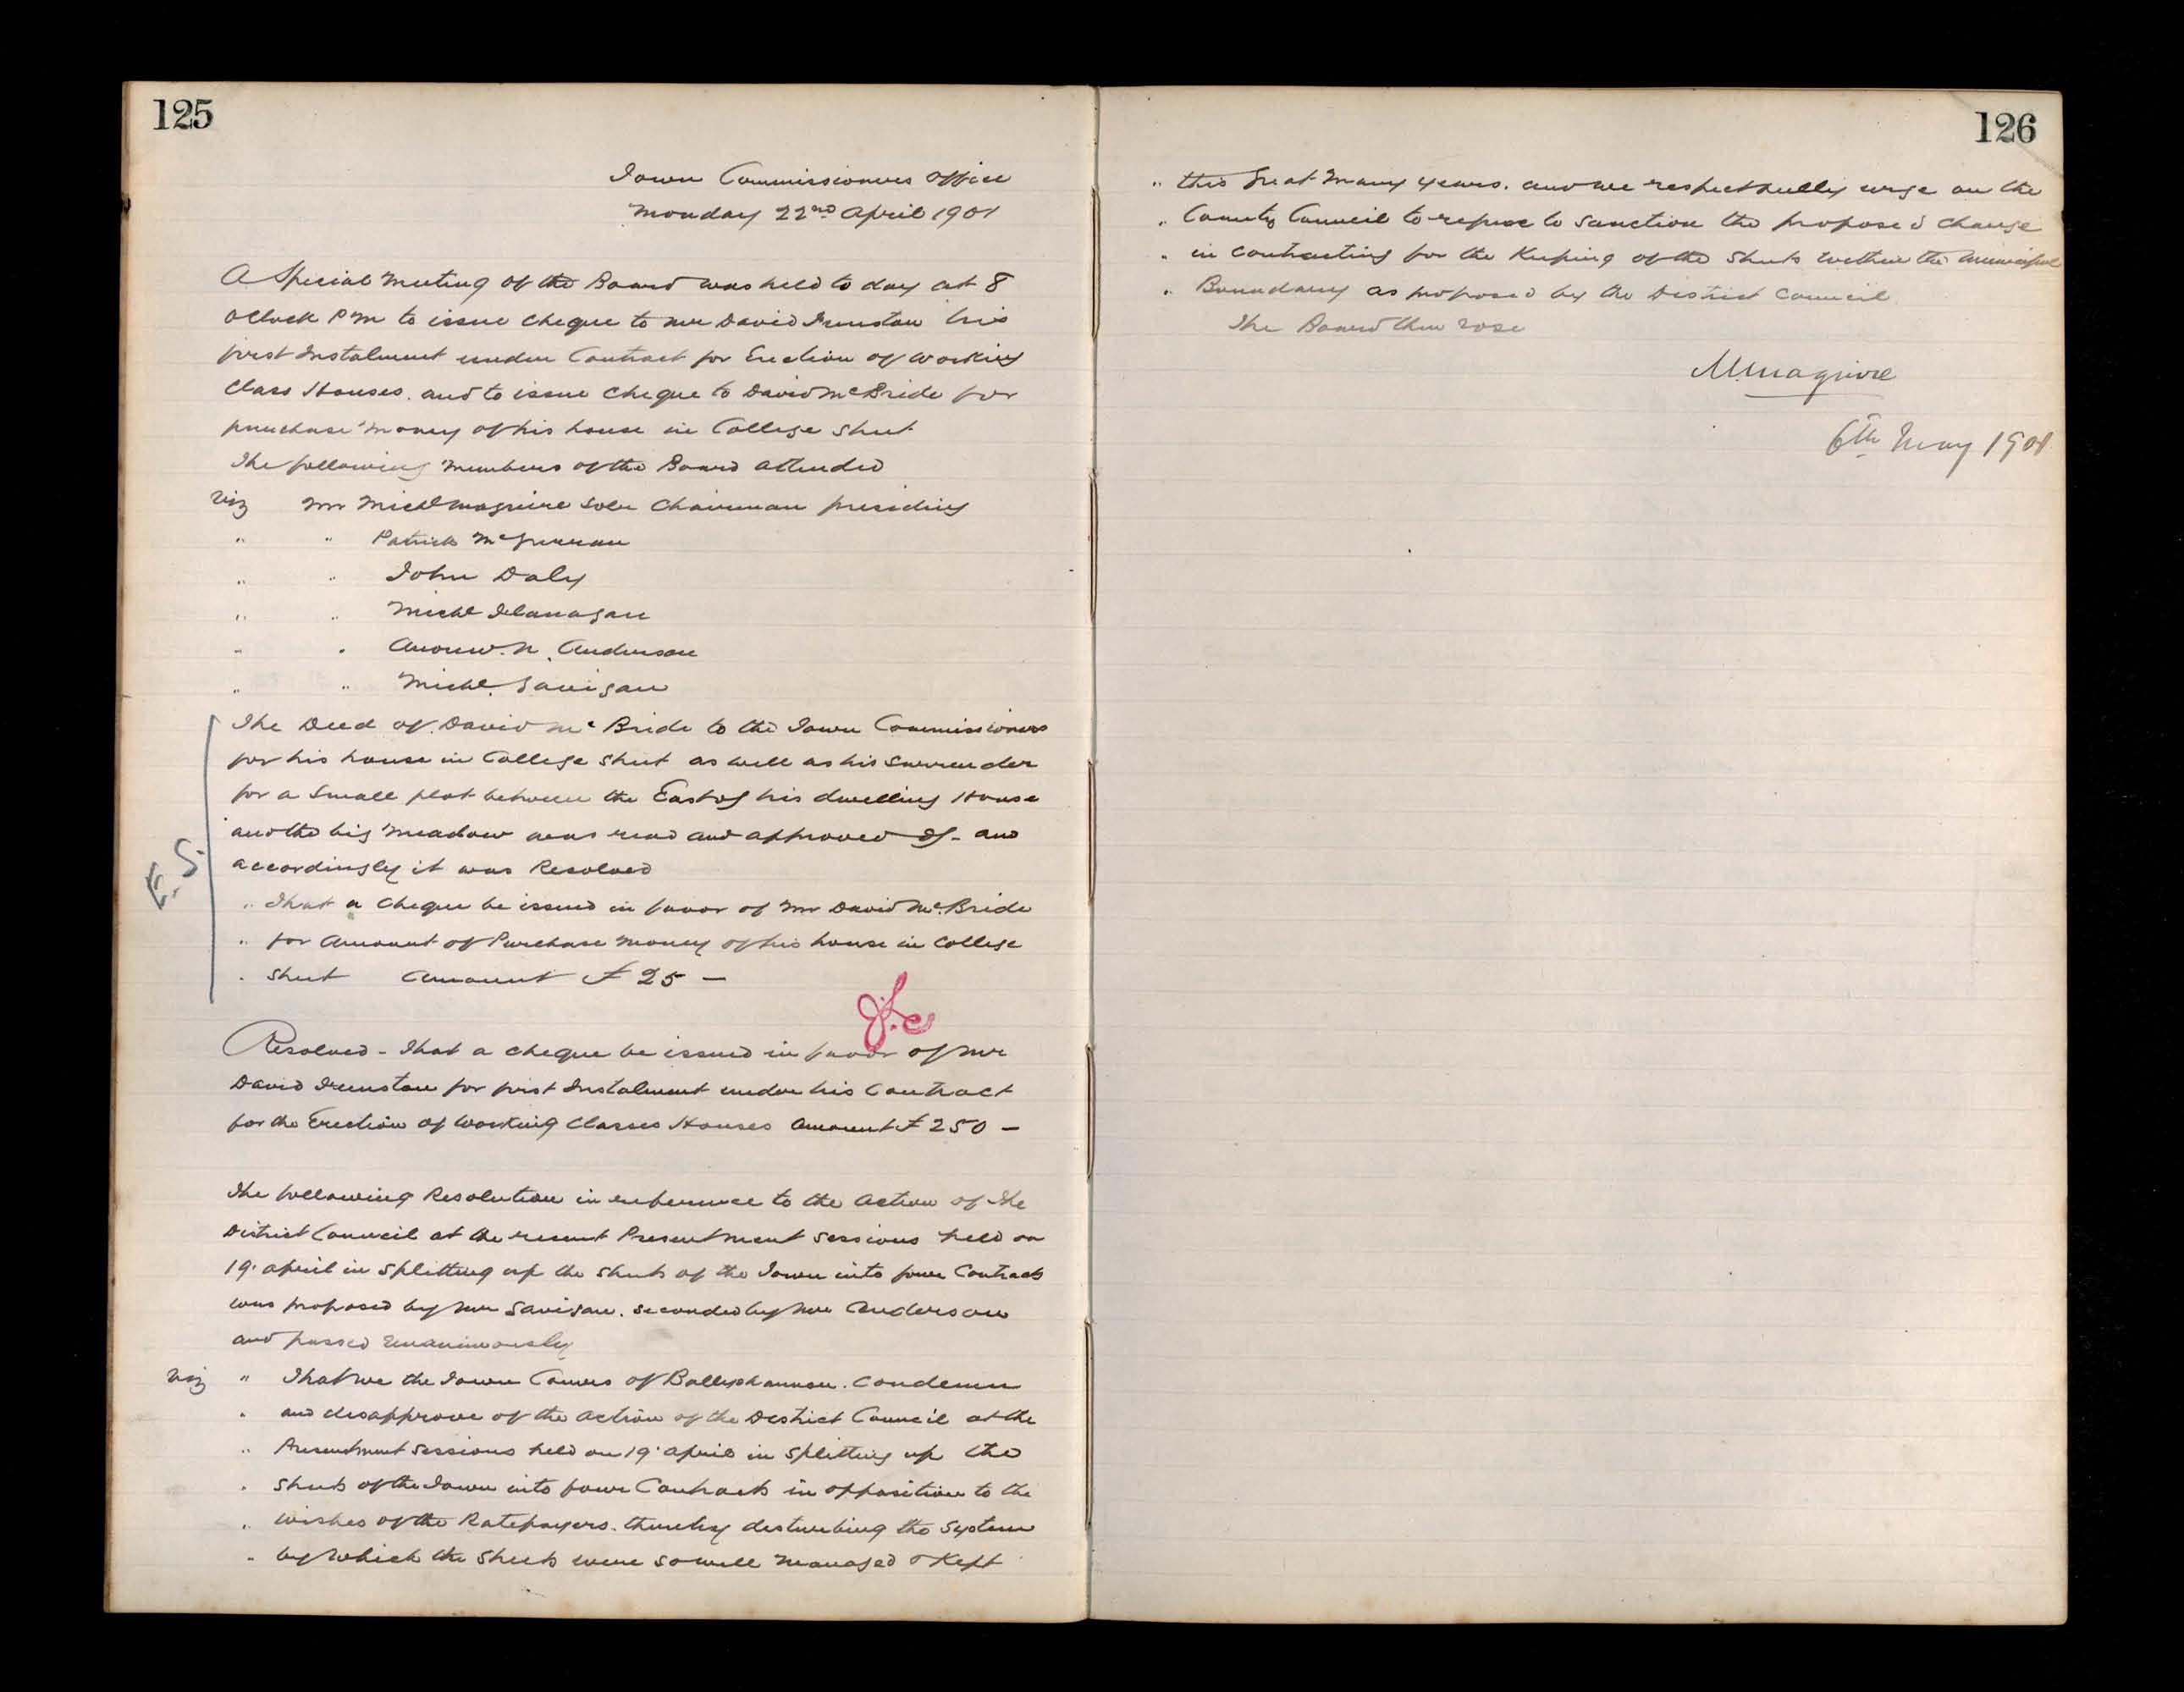 125
Town Commissioners Office
Monday 22nd April 1901
A Special Meeting of the Board was held to day at 8
OClock P.M to issue Cheque to Mr David his
first Instalment under Contract for Erection of Working
Class Houses. and to issue Cheque to David McBride for
purchase Money of his house in College Street
The following Members of the Board attended
Viz Mr Michl Maguire Solr Chairman presiding
" " Patrick
" " John Daly
" " Michl Flanagan
" " Andrew. N. Anderson
" " Michl. Gavigan
The Deed of David Mc Bride to the Town Commissioners
for his house in College Street as well as his Surrender
for a Small plot between the East of his dwelling House
and the big Meadow was read and approved of - and
accordingly it was Resolved
" That a Cheque be issued in favor of Mr David Mc.Bride
" for Amount of Purchase Money of his house in College
" Street Amount £ 25 —
E.S.
Resolved - That a Cheque be issued in favor of Mr
David for first Instalment under his Contract
for the Erection of Working Classes Houses Amount £ 250 —
The following Resolution in reference to the Action of the
District Council at the recent Presentment Sessions held on
19. April in Splitting up the Streets of the Town into four Contracts
was proposed by Mr Gavigan. seconded by Mr Anderson
and passed unanimously
Viz " That we the Town Comrs of Ballyshannon. Condemn
" and disapprove of the Action of the District Council at the
" Presentment Sessions held on 19. April in Splitting up the
" Streets of the Town into four Contracts in opposition to the
" wishes of the Ratepayers. thereby disturbing the System
" by Which the Streets were so well Managed & Kept
126
" this Great Many years. and we respectfully urge on the
" County Council to refuse to Sanction the proposed Change
" in Contracting for the Keeping of the Streets within the Municipal
" Boundary as proposed by the District Council
The Board then rose
M. Maguire
6th May 1901